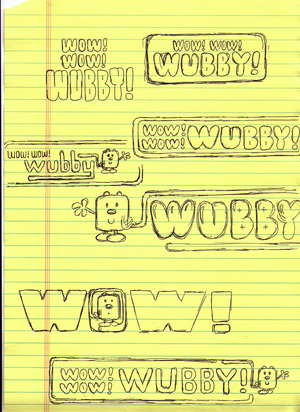 WOW!
WOW!
WUBBY!
WOW! WOW!
WUBBY!
WOW!
WOW!
WUBBY!
wow! wow!
wubby
WUBBY
WOW!
WOW!
WOW!
WUBBY!